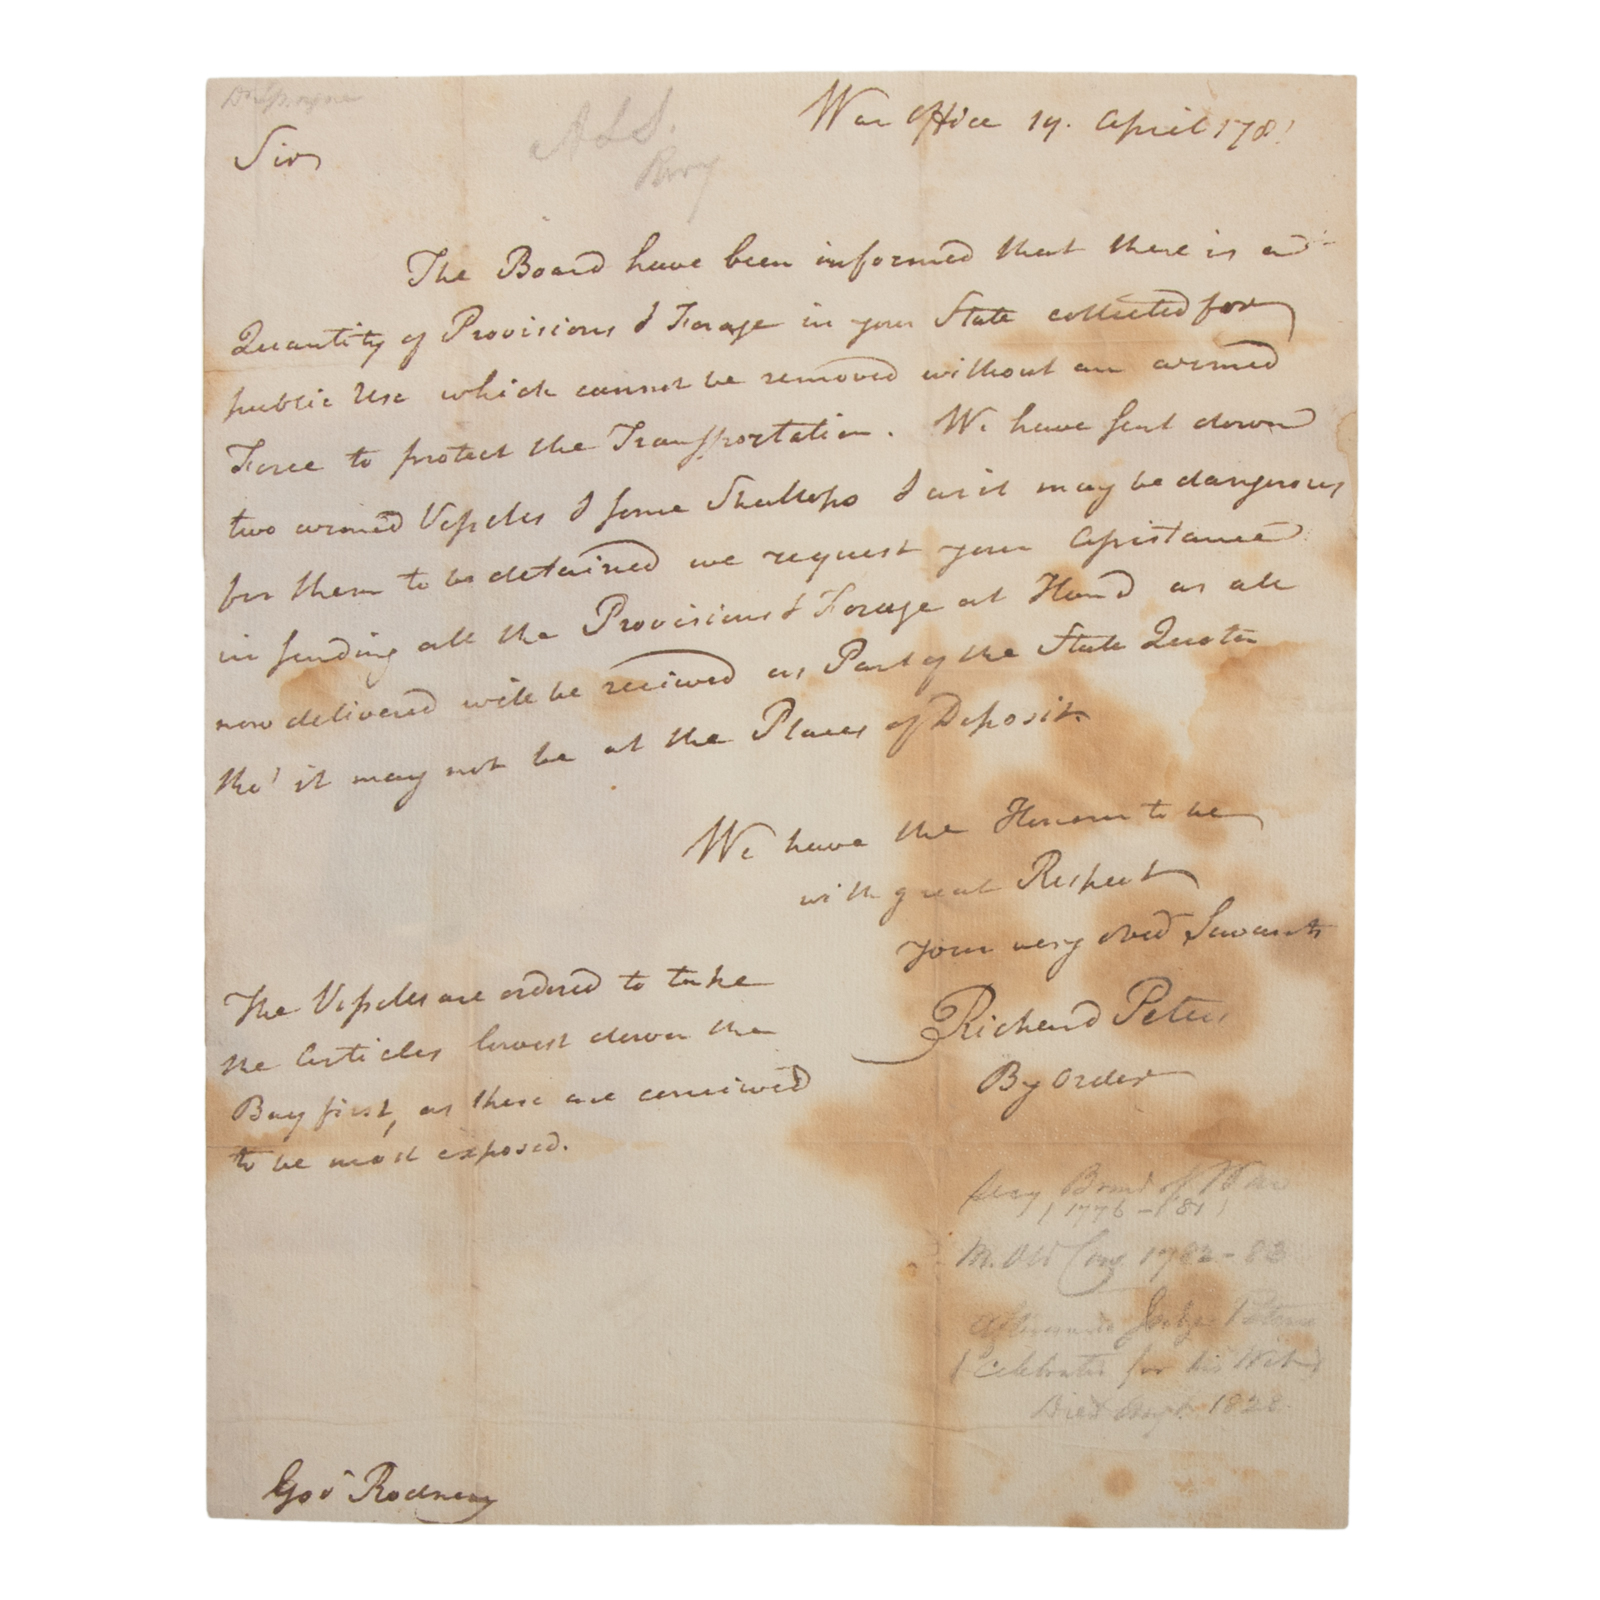 War Office 19. April 1781
Sir
A L S.
The Board have been informed that there is a
Quantity of Provisions & Forage in your State collected for
public Use which cannot be removed without an armed
Force to protect the Transportation. We have sent down
two armed Vessels & some Shallops & as it may be dangerous
for them to be detained we request your Assistance
in sending all the Provisions & Forage at Hand as all
now delivered will be received as Part of the State Quota
tho' it may not be at the Places of Deposit.
We have the Honour to be
with great Respect
your very obed Servants
Richard Peters
By Order
The Vessels are ordered to take
the Articles lowest down the
Bay first, as these are conceived
to be most exposed.
Secy Board of War
(1776-81)
M. Old Cong. 1782-83
Afterwards Judge Peters
Celebrated for his Wit
Died Augt. 1828
Govr Rodney